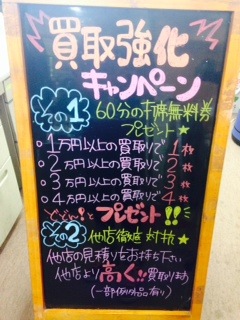 買取強化
キャンペーン
その1
60分の1席無料券
プレゼント★
○1万円以上の買取りで 1枚
○2万円以上の買取りで 2枚
○3万円以上の買取りで 3枚
○4万円以上の買取りで 4枚
どどん!とプレゼント!!
その2 他店徹底対抗★
他店の見積りをお持ち下さい
他店より高く!!買取ります
(一部例外品有り)